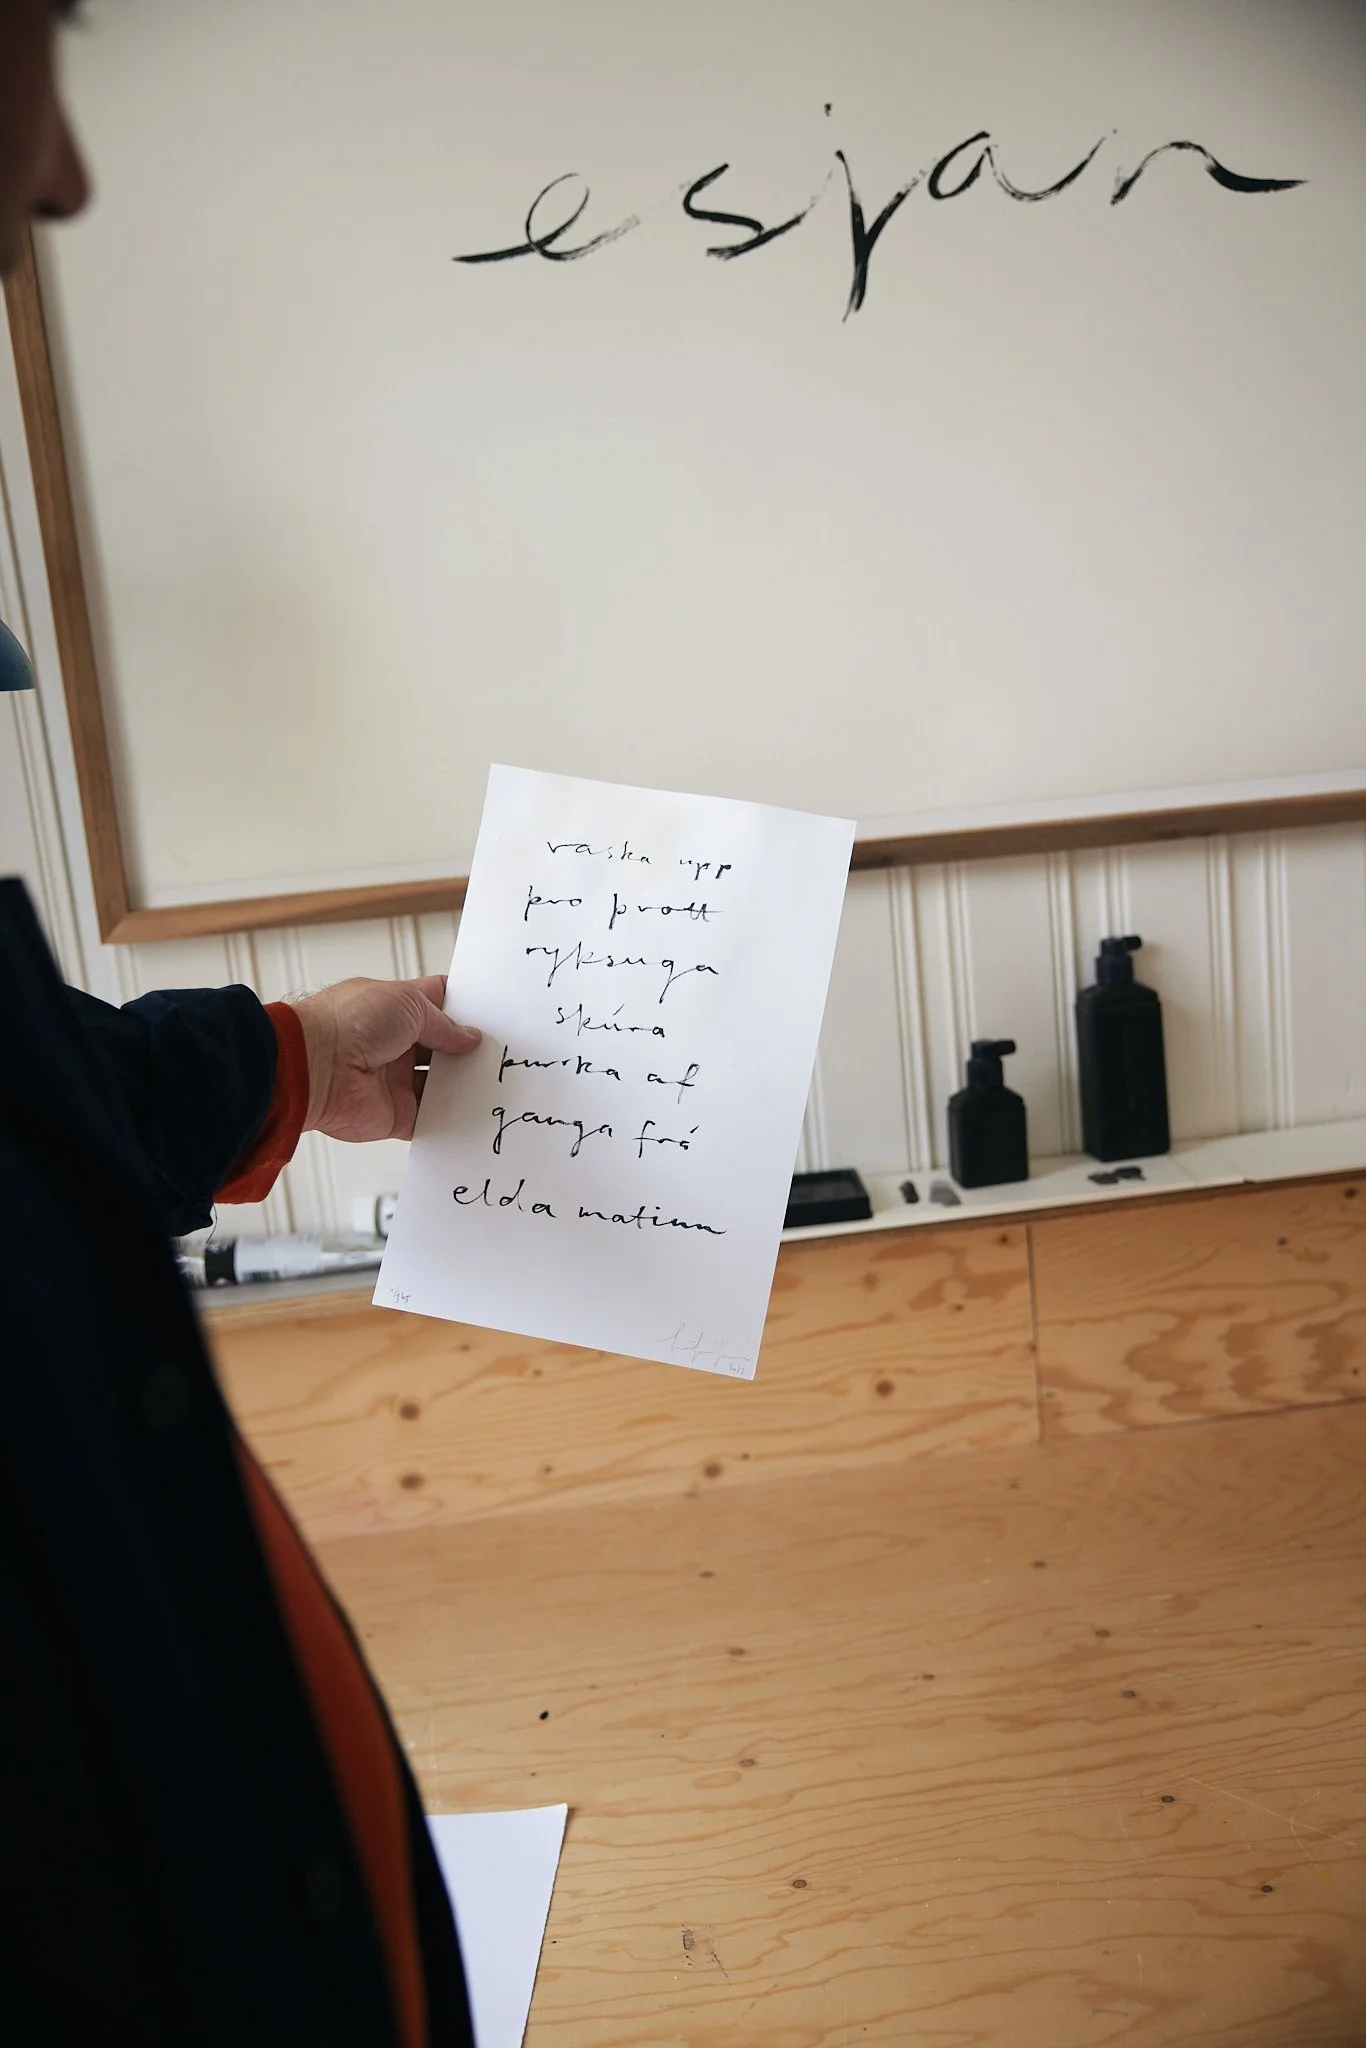 esjan
vaska upp
þvo þvott
ryksuga
skúra
þurrka af
ganga frá
elda matinn
2022